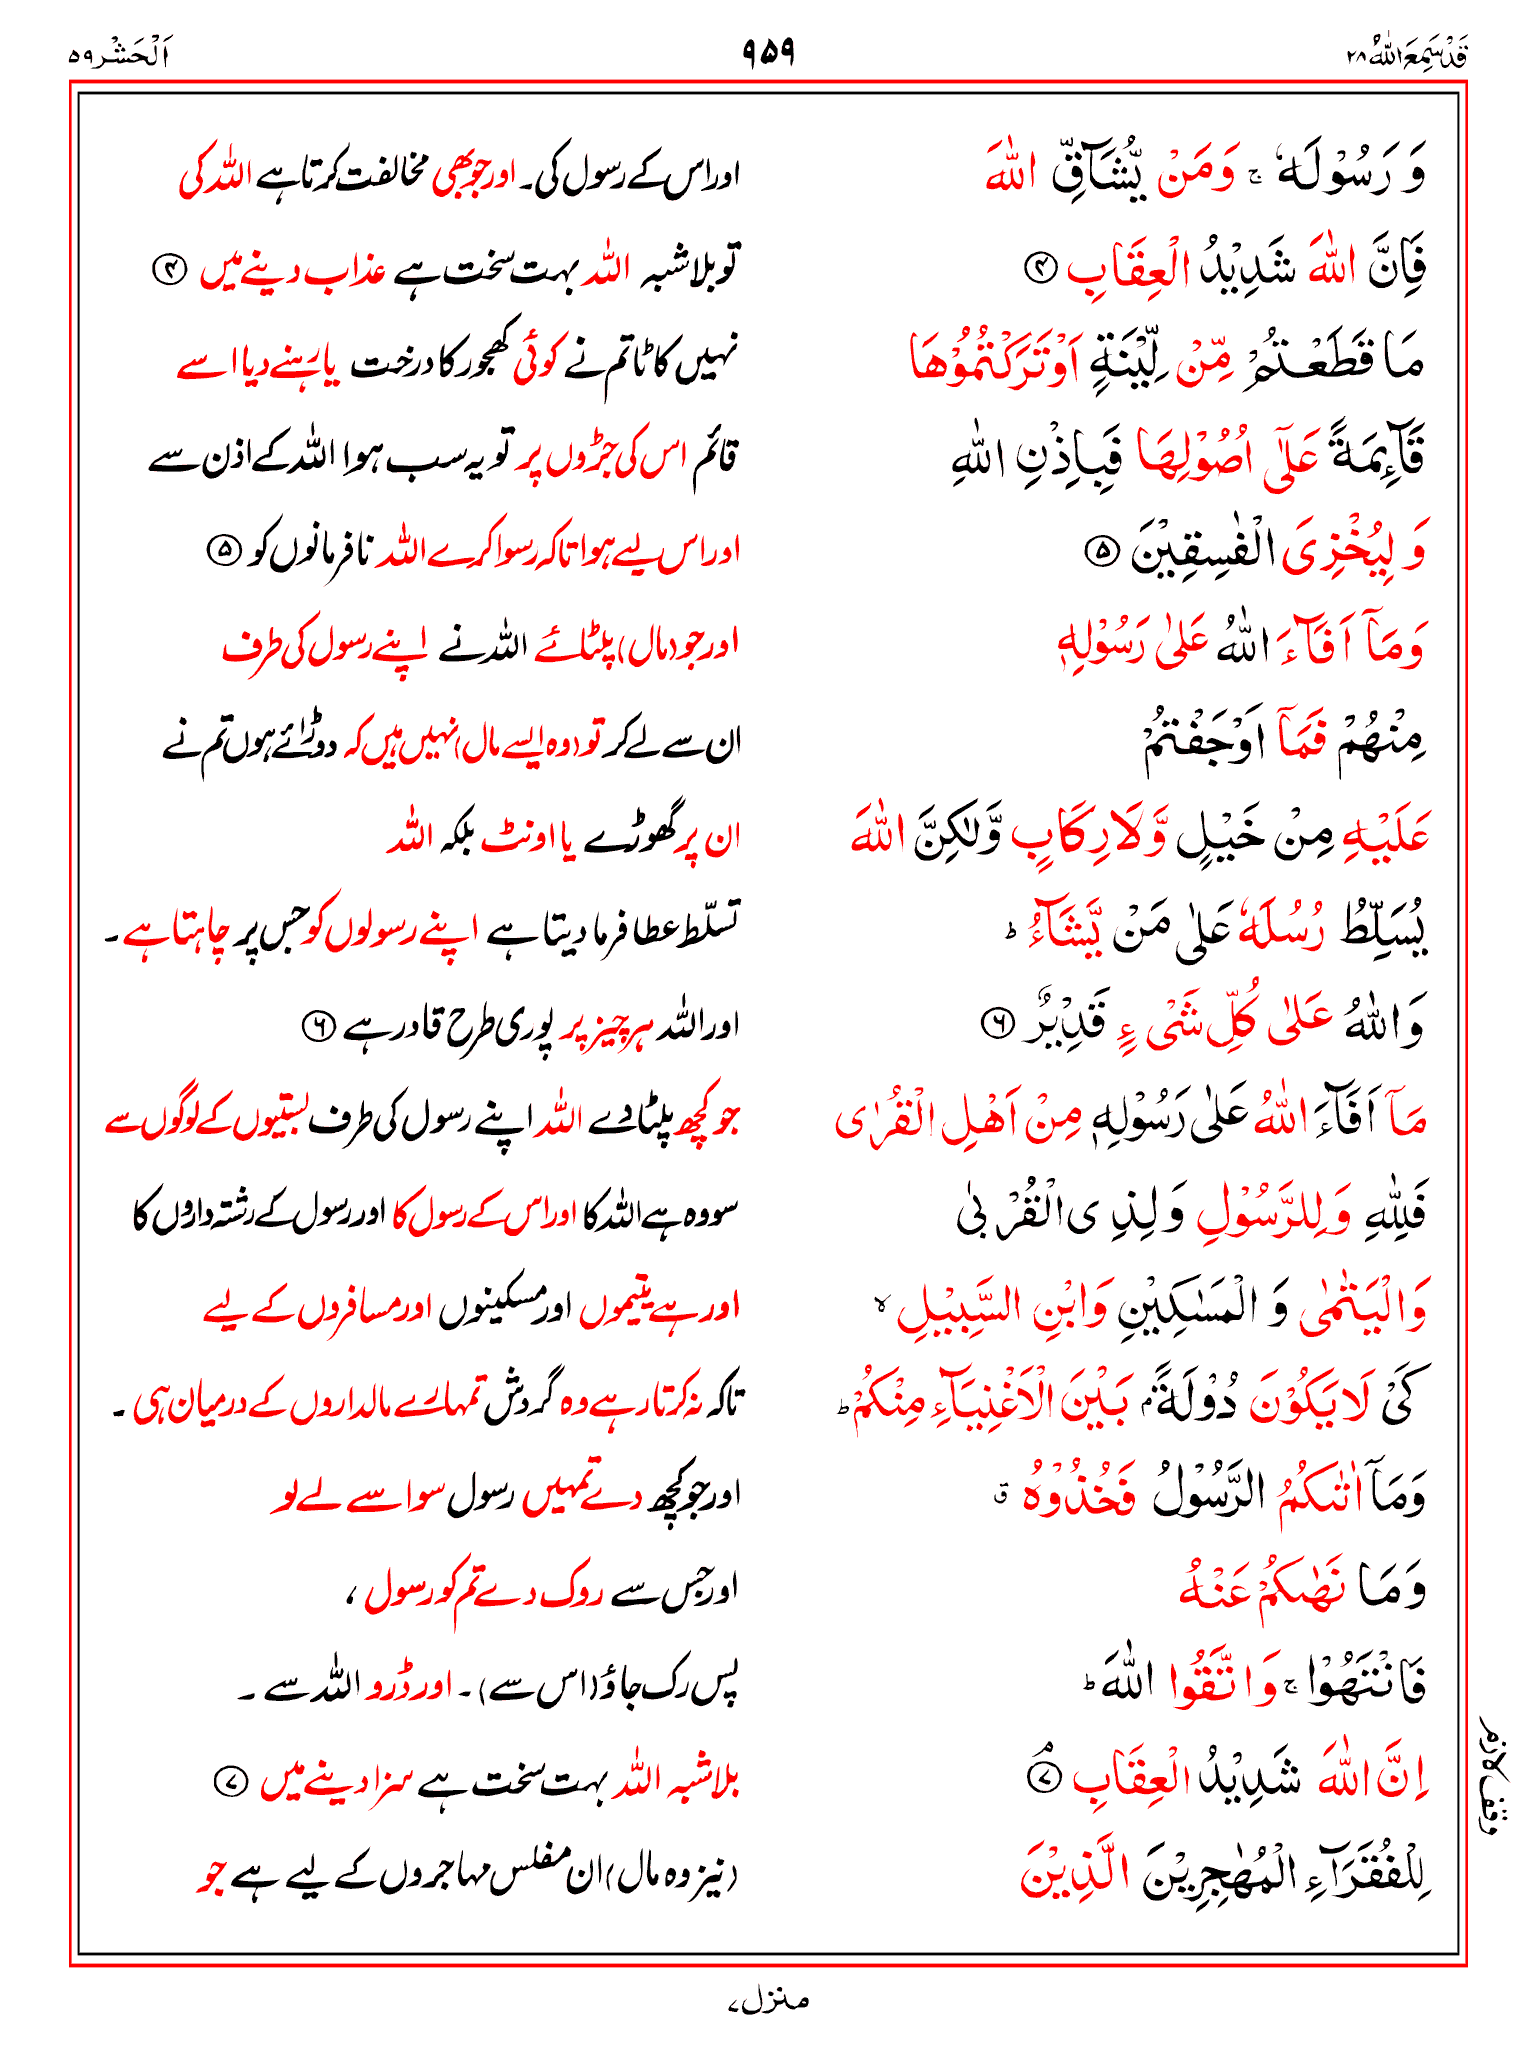 قَدْسَمِعَ اللّٰهُ ۲۸
۹۵۹
اَلْحَشْر ۵۹
وَ رَسُوْلَهٗ ۚ وَمَنْ يُّشَآقِّ اللّٰهَ
اور اس کے رسول کی۔ اور جو بھی مخالفت کرتا ہے اللہ کی
فَاِنَّ اللّٰهَ شَدِيْدُ الْعِقَابِ ۴
تو بلاشبہ اللہ بہت سخت ہے عذاب دینے میں ۴
مَا قَطَعْتُمْ مِّنْ لِّيْنَةٍ اَوْتَرَكْتُمُوْهَا
نہیں کاٹا تم نے کوئی کھجور کا درخت یا رہنے دیا اسے
قَآىِٕمَةً عَلٰٓى اُصُوْلِهَا فَبِاِذْنِ اللّٰهِ
قائم اس کی جڑوں پر تو یہ سب ہوا اللہ کے اذن سے
وَ لِيُخْزِىَ الْفٰسِقِيْنَ ۵
اور اس لیے ہوا تاکہ رسوا کرے اللہ نافرمانوں کو ۵
وَمَآ اَفَآءَ اللّٰهُ عَلٰى رَسُوْلِهٖ
اور جو (مال) پلٹائے اللہ نے اپنے رسول کی طرف
مِنْهُمْ فَمَآ اَوْجَفْتُمْ
ان سے لے کر تو (وہ ایسے مال) نہیں ہیں کہ دوڑائے ہوں تم نے
عَلَيْهِ مِنْ خَيْلٍ وَّلَا رِكَابٍ وَّلٰكِنَّ اللّٰهَ
ان پر گھوڑے یا اونٹ بلکہ اللہ
يُسَلِّطُ رُسُلَهٗ عَلٰى مَنْ يَّشَآءُ ؕ
تسلّط عطا فرما دیتا ہے اپنے رسولوں کو جس پر چاہتا ہے۔
وَاللّٰهُ عَلٰى كُلِّ شَىْءٍ قَدِيْرٌ ۶
اور اللہ ہر چیز پر پوری طرح قادر ہے ۶
مَآ اَفَآءَ اللّٰهُ عَلٰى رَسُوْلِهٖ مِنْ اَهْلِ الْقُرٰى
جو کچھ پلٹا دے اللہ اپنے رسول کی طرف بستیوں کے لوگوں سے
فَلِلّٰهِ وَ لِلرَّسُوْلِ وَ لِذِى الْقُرْبٰى
سو وہ ہے اللہ کا اور اس کے رسول کا اور رسول کے رشتہ داروں کا
وَالْيَتٰمٰى وَ الْمَسٰكِيْنِ وَابْنِ السَّبِيْلِ ۙ
اور ہے یتیموں اور مسکینوں اور مسافروں کے لیے
كَىْ لَا يَكُوْنَ دُوْلَةًۢ بَيْنَ الْاَغْنِيَآءِ مِنْكُمْ ؕ
تاکہ نہ کرتا رہے وہ گردش تمہارے مالداروں کے درمیان ہی۔
وَمَآ اٰتٰىكُمُ الرَّسُوْلُ فَخُذُوْهُ ق
اور جو کچھ دے تمہیں رسول سو اسے لے لو
وَمَا نَهٰىكُمْ عَنْهُ
اور جس سے روک دے تم کو رسول ،
فَانْتَهُوْا ۚ وَاتَّقُوا اللّٰهَ ؕ
پس رک جاؤ (اس سے)۔ اور ڈرو اللہ سے۔
اِنَّ اللّٰهَ شَدِيْدُ الْعِقَابِ ۘ ۷
بلاشبہ اللہ بہت سخت ہے سزا دینے میں ۷
وقف لازم
لِلْفُقَرَآءِ الْمُهٰجِرِيْنَ الَّذِيْنَ
(نیز وہ مال) ان مفلس مہاجروں کے لیے ہے جو
منزل ۷